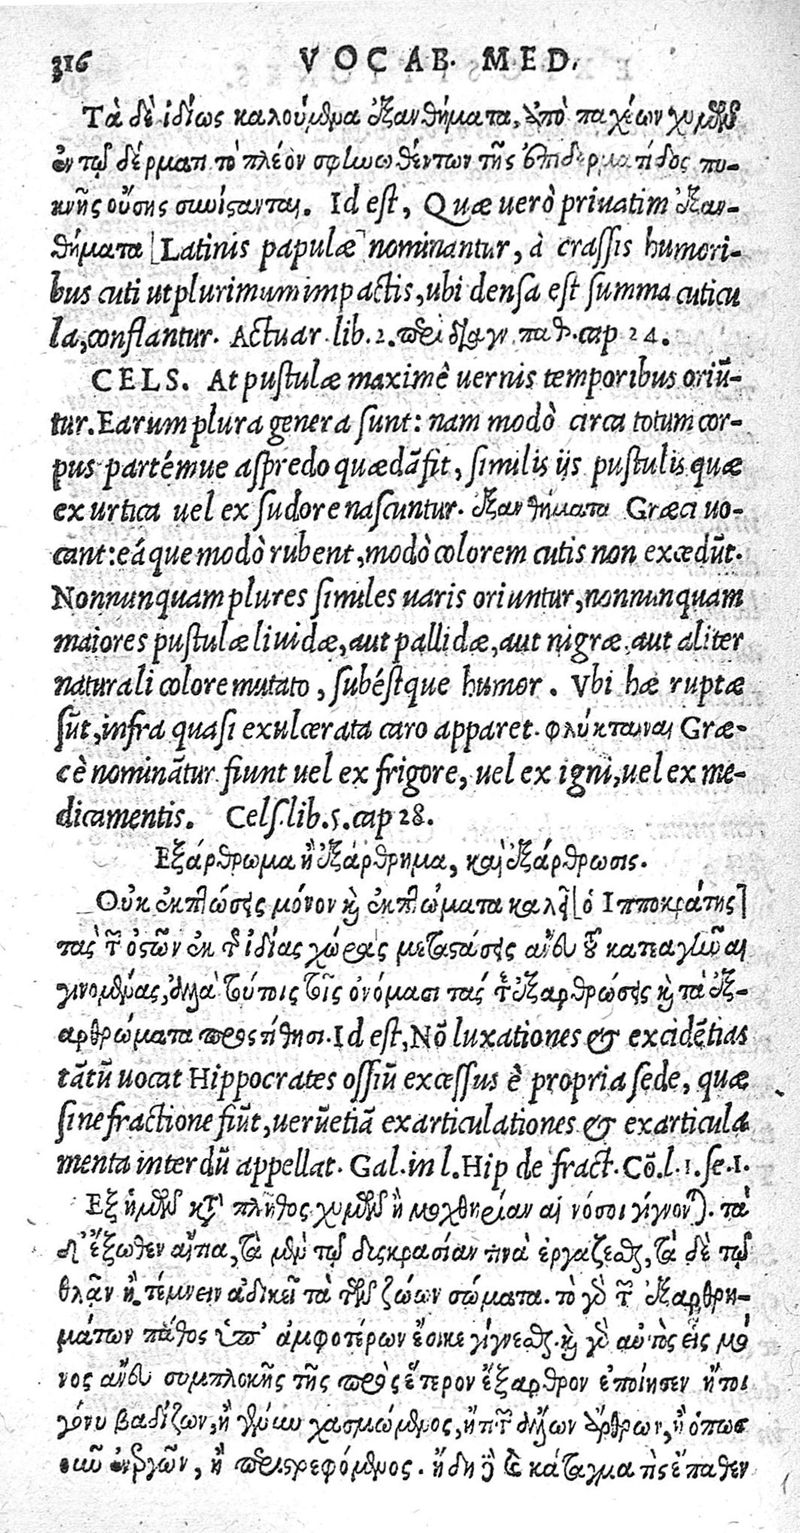 316 VOCAB. MED.
Τὰ δὲ ἰδίως καλούμενα ἐξανθήματα, ἀπὸ παχέων χυμῶν
ἐν τῷ δέρματι τὸ πλέον σφηνωθέντων τῆς ἐπιδερματίδος πυ-
κνῆς οὔσης συνίστανται. Id est, Quæ uerò priuatim ἐξαν-
θήματα [Latinis papulæ] nominantur, à crassis humori-
bus cuti ut plurimum impactis, ubi densa est summa cuticu
la, conflantur. Actuar. lib. 2. περὶ διαγν. παθ. cap 24.
CELS. At pustulæ maximè uernis temporibus oriũ-
tur. Earum plura genera sunt: nam modò circa totum cor-
pus partémue aspredo quædã fit, similis iis pustulis quæ
ex urtica uel ex sudore nascuntur. ἐξανθήματα Græci uo-
cant: eáque modò rubent, modò colorem cutis non excedũt.
Nonnunquam plures similes uaris oriuntur, nonnunquam
maiores pustulæ liuidæ, aut pallidæ, aut nigræ, aut aliter
naturali colore mutato, subéstque humor. Vbi hæ ruptæ
sũt, infra quasi exulcerata caro apparet. φλύκταιναι Græ-
cè nominãtur. fiunt uel ex frigore, uel ex igni, uel ex me-
dicamentis. Cels. lib. 5. cap 28.
Εξάρθρωμα ἢ ἐξάρθρημα, καὶ ἐξάρθρωσις.
Οὐκ ἐκπτώσεις μόνον καὶ ἐκπτώματα καλεῖ [ὁ Ιπποκράτης]
τὰς τῶν ὀστῶν ἐκ τῆς ἰδίας χώρας μεταστάσεις ἄνευ τοῦ καταγῶναι
γινομένας, ἀλλὰ τούτοις τοῖς ὀνόμασι τάς τε ἐξαρθρώσεις καὶ τὰ ἐξ-
αρθρώματα προστίθησι. Id est, Nõ luxationes & excidẽtias
tãtũ uocat Hippocrates ossiũ excessus è propria sede, quæ
sine fractione fiũt, uerũetiã exarticulationes & exarticula
menta interdũ appellat. Gal. in l. Hip de fract. Cõ. l. 1. se. 1.
Εξ ἡμῶν κατὰ πλῆθος χυμῶν ἢ μοχθηρίαν αἱ νόσοι γίγνονται. τὰ
δ' ἔξωθεν αἴτια, τὰ μὲν τῷ δυσκρασίαν τινὰ ἐργάζεσθαι, τὰ δὲ τῷ
θλᾶν ἢ τέμνειν ἀδικεῖ τὰ τῶν ζώων σώματα. τὸ γὰρ τῶν ἐξαρθρη-
μάτων πάθος ὑπ' ἀμφοτέρων ἔοικε γίγνεσθαι. καὶ γὰρ αὐτός τις εἷς μό
νος ἄνευ συμπλοκῆς τῆς πρὸς ἕτερον ἔξαρθρον ἐποίησεν ἤτοι
γόνυ βαδίζων, ἢ γένυν χασμώμενος, ἤ τι τῶν ἄλλων ἄρθρων, ἢ ὁπωσ
οῦν ἐνεργῶν, ἢ περιστρεφόμενος. ἤδη δὲ καὶ κάταγμά τις ἔπαθεν